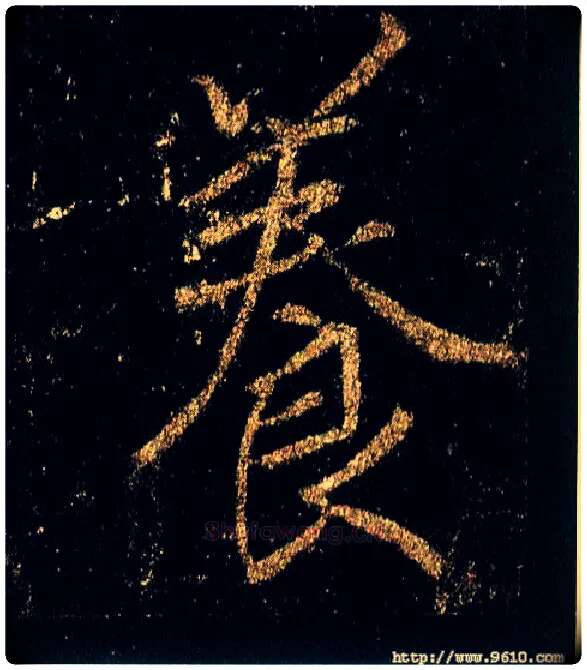 養
Shufawang.cn
http://www.9610.com